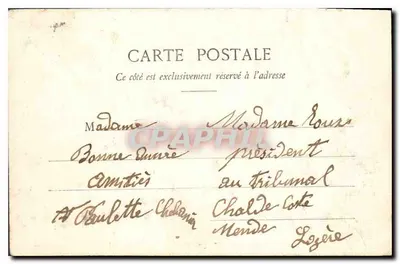 CARTE POSTALE
Ce côté est exclusivement réservé à l'adresse
Madame
Bonne année
amitiés
Paulette
Madame Roux
président
au tribunal
Chalde Cote
Mende
Lozère
CPAPHIL